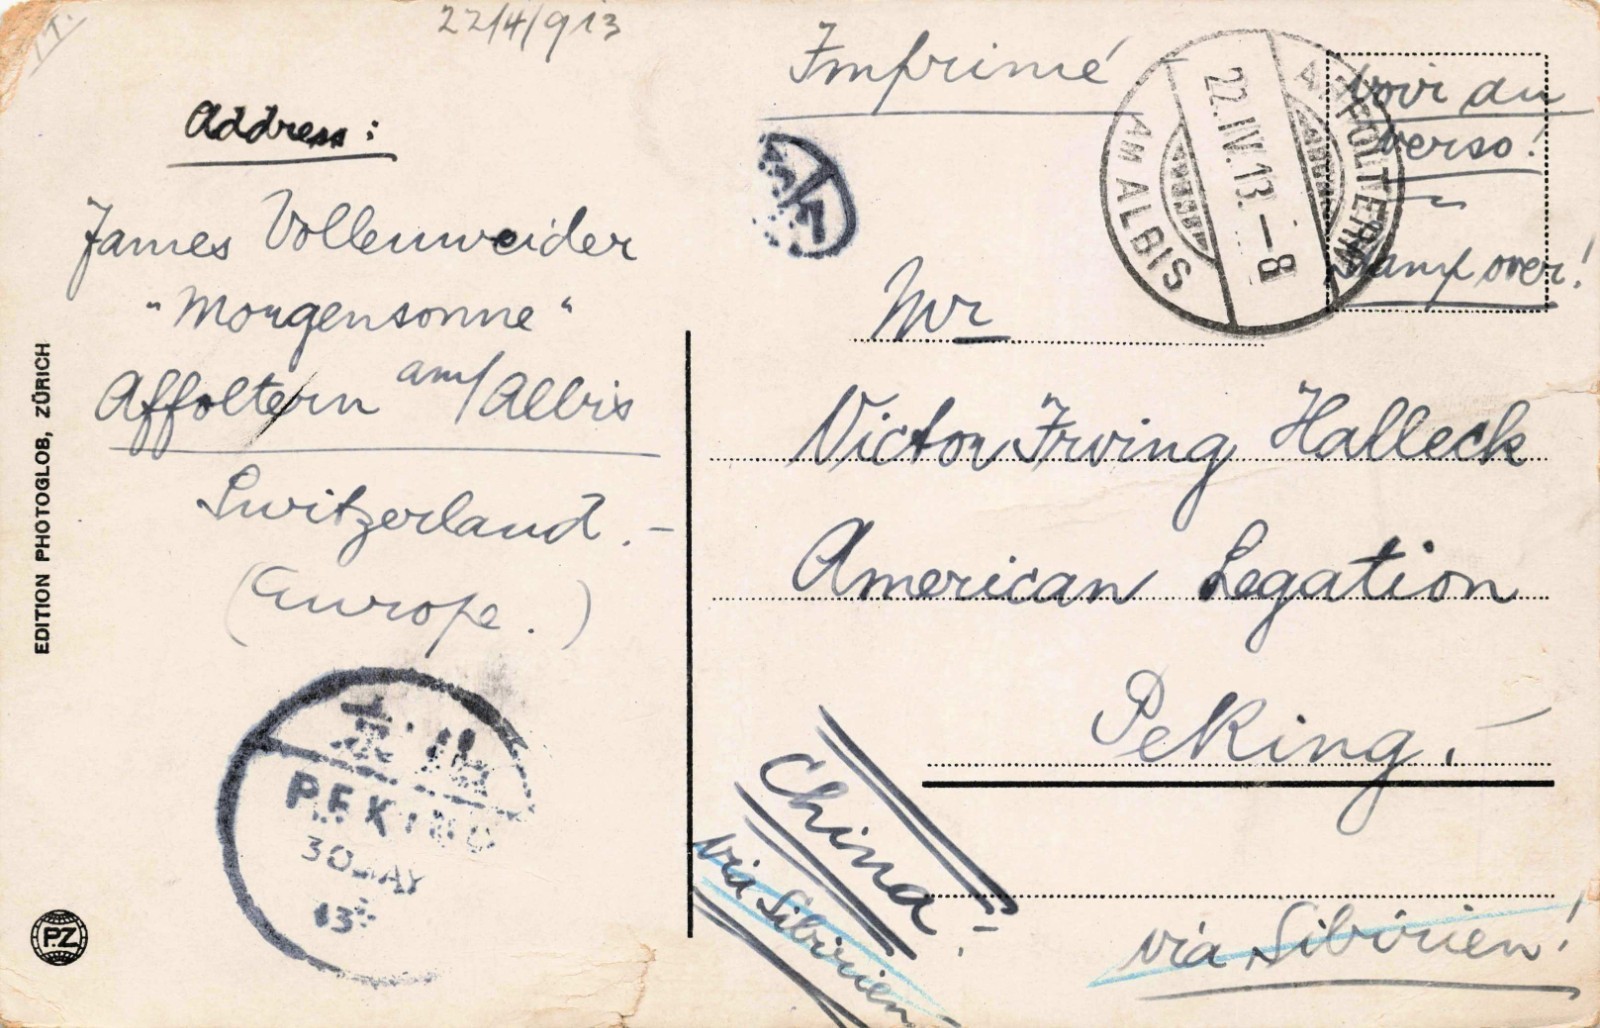 22/4/913
Imprimé
voir au
verso!
Stamp over!
AFFOLTERN
AM ALBIS
22.IV.13.–8
Address:
James Vollenweider
"Morgensonne"
Affoltern am/Albis
Switzerland.–
(Europe.)
EDITION PHOTOGLOB, ZÜRICH
PZ
北京
PEKING
30 MAY
13
Mr
Victor Irving Halleck
American Legation
Peking.–
China.–
via Sibirien
via Sibirien!